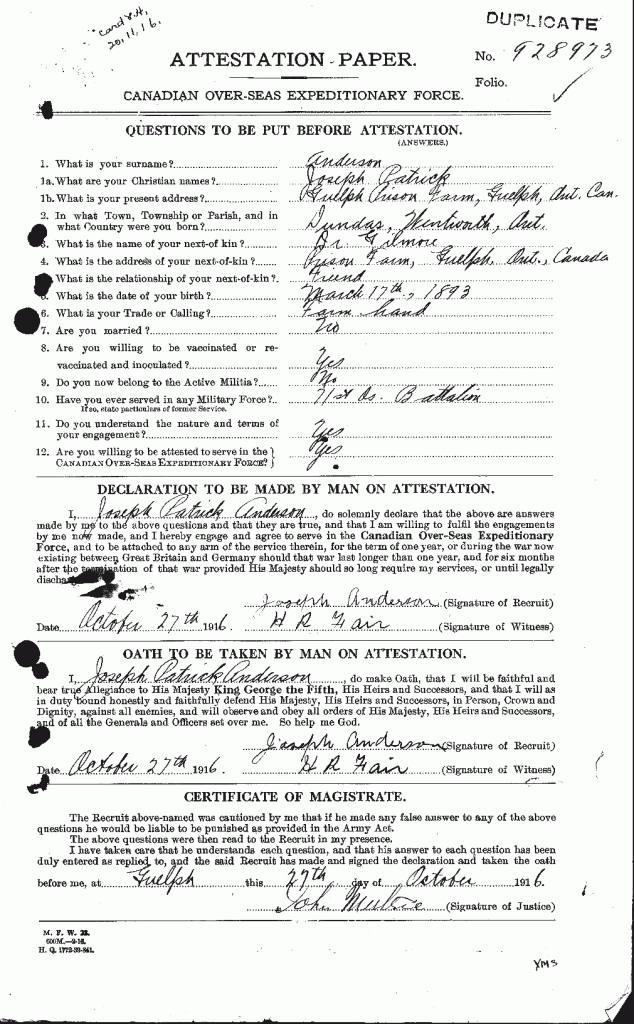 Card Y.H.
20.11.16.
DUPLICATE
ATTESTATION PAPER.
No. 928973
Folio.
CANADIAN OVER-SEAS EXPEDITIONARY FORCE.
QUESTIONS TO BE PUT BEFORE ATTESTATION.
(ANSWERS.)
1. What is your surname? Anderson
1a. What are your Christian names? Joseph Patrick
1b. What is your present address? Guelph Prison Farm, Guelph, Ont. Can.
2. In what Town, Township or Parish, and in
what Country were you born? Dundas, Wentworth, Ont.
3. What is the name of your next-of kin? Dr Gilmore
4. What is the address of your next-of-kin? Prison Farm, Guelph. Ont., Canada
What is the relationship of your next-of-kin? Friend
5. What is the date of your birth? March 17th, 1893
6. What is your Trade or Calling? Farm hand
7. Are you married? No
8. Are you willing to be vaccinated or re-
vaccinated and inoculated? Yes
9. Do you now belong to the Active Militia? No
10. Have you ever served in any Military Force? 71st Os. Battalion
If so, state particulars of former Service.
11. Do you understand the nature and terms of
your engagement? Yes
12. Are you willing to be attested to serve in the } Yes
CANADIAN OVER-SEAS EXPEDITIONARY FORCE?
DECLARATION TO BE MADE BY MAN ON ATTESTATION.
I, Joseph Patrick Anderson, do solemnly declare that the above are answers
made by me to the above questions and that they are true, and that I am willing to fulfil the engagements
by me now made, and I hereby engage and agree to serve in the Canadian Over-Seas Expeditionary
Force, and to be attached to any arm of the service therein, for the term of one year, or during the war now
existing between Great Britain and Germany should that war last longer than one year, and for six months
after the termination of that war provided His Majesty should so long require my services, or until legally
discharged.
Joseph Anderson (Signature of Recruit)
Date October 27th 1916. H R Fair (Signature of Witness)
OATH TO BE TAKEN BY MAN ON ATTESTATION.
I, Joseph Patrick Anderson, do make Oath, that I will be faithful and
bear true Allegiance to His Majesty King George the Fifth, His Heirs and Successors, and that I will as
in duty bound honestly and faithfully defend His Majesty, His Heirs and Successors, in Person, Crown and
Dignity, against all enemies, and will observe and obey all orders of His Majesty, His Heirs and Successors,
and of all the Generals and Officers set over me. So help me God.
Joseph Anderson (Signature of Recruit)
Date October 27th 1916. H R Fair (Signature of Witness)
CERTIFICATE OF MAGISTRATE.
The Recruit above-named was cautioned by me that if he made any false answer to any of the above
questions he would be liable to be punished as provided in the Army Act.
The above questions were then read to the Recruit in my presence.
I have taken care that he understands each question, and that his answer to each question has been
duly entered as replied to, and the said Recruit has made and signed the declaration and taken the oath
before me, at Guelph this 27th day of October 1916.
John (Signature of Justice)
M. F. W. 23.
600M.—2-16.
H. Q. 1772-39-841.
YMS